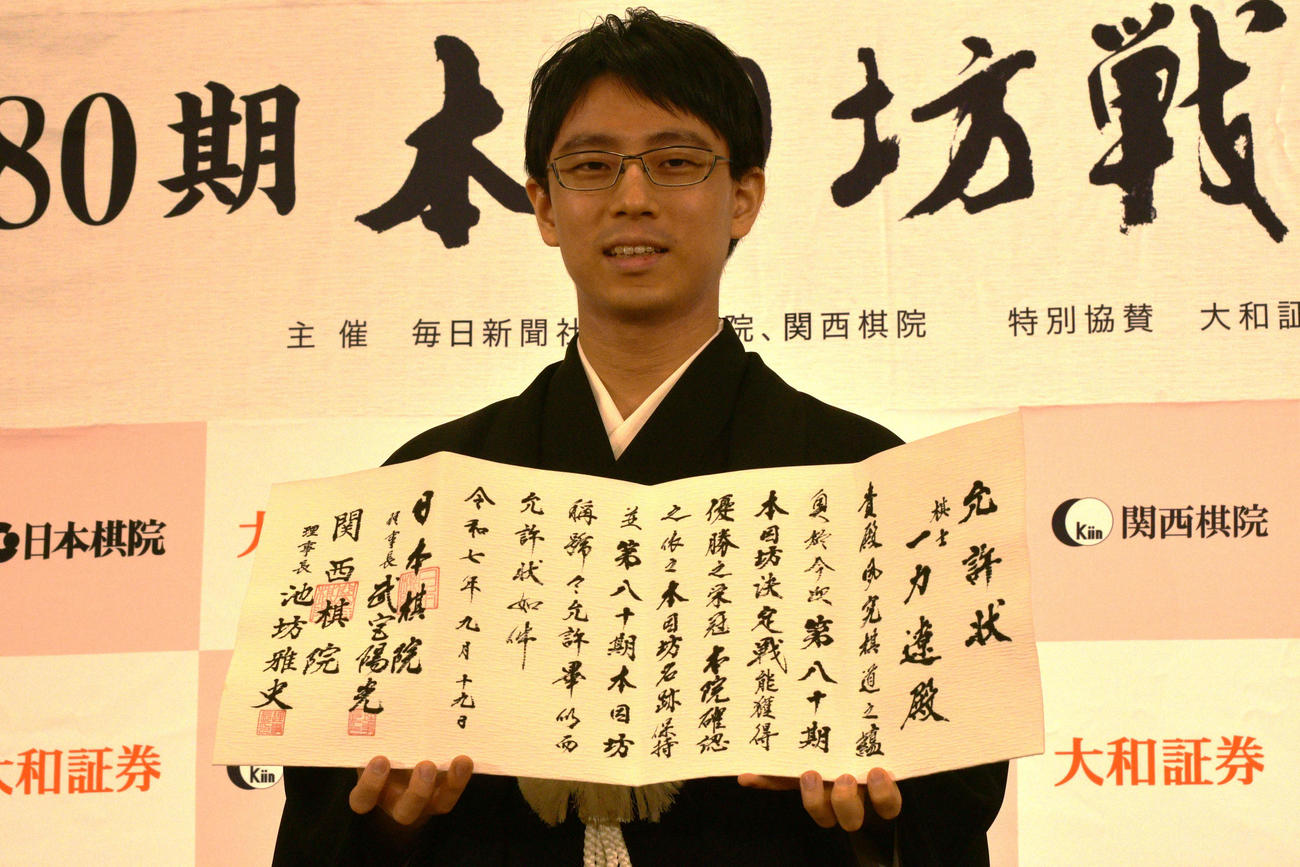 80期 本因坊戦
主催 毎日新聞社 院、関西棋院 特別協賛 大和証
日本棋院
大
Kiin 関西棋院
大和証券
Kiin
大和証券
允許状
棋士 一力遼殿
貴殿夙究棋道之蘊
奥於今次第八十期
本因坊決定戦能獲得
優勝之栄冠本院確認
之依之本因坊名跡保持
並第八十期本因坊
稱號々允許畢仍而
允許状如件
令和七年九月十九日
日本棋院
理事長 武宮陽光
関西棋院
理事長 池坊雅史